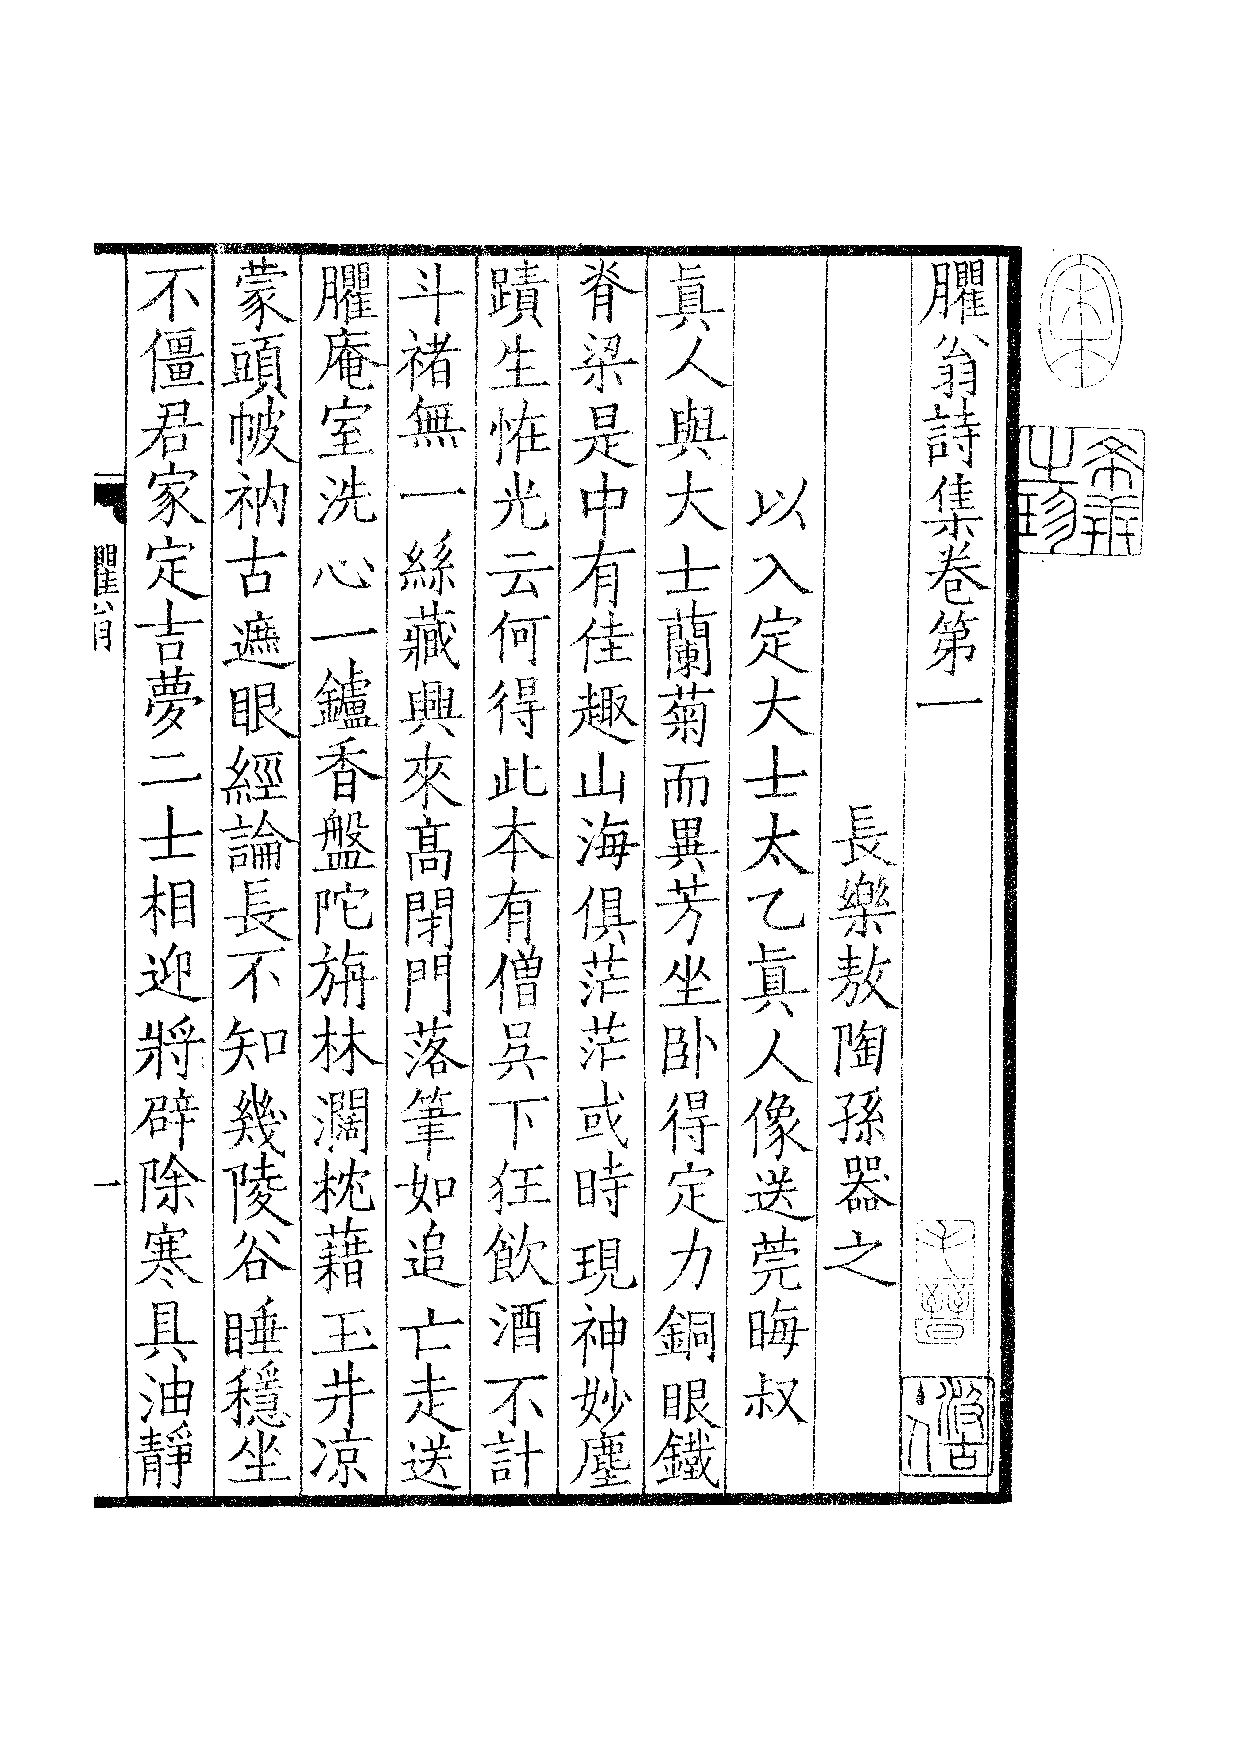 宋本
希世之珍
臞翁詩集卷第一
子晉
汲古主人
長樂敖陶孫器之
以入定大士太乙眞人像送莞晦叔
眞人與大士蘭菊而異芳坐卧得定力銅眼鐵
脊梁是中有佳趣山海俱茫茫或時現神妙塵
蹟生恠光云何得此本有僧吳下狂飲酒不計
斗褚無一絲藏興來高閉門落筆如追亡走送
臞庵室洗心一鑪香盤陀旃林濶枕藉玉井凉
蒙頭帔衲古遮眼經論長不知幾陵谷睡穩坐
不僵君家定吉夢二士相迎將辟除寒具油靜
臞翁
一